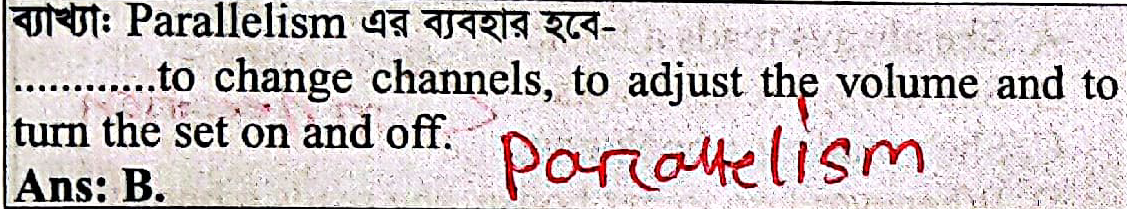 ব্যাখ্যা: Parallelism এর ব্যবহার হবে-
............to change channels, to adjust the volume and to
turn the set on and off.
Parallelism
Ans: B.